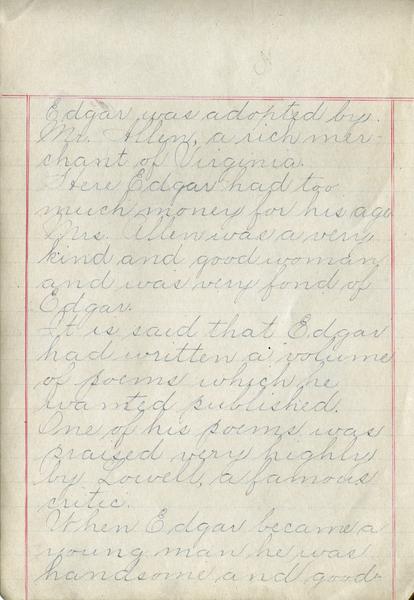 Edgar was adopted by
Mr. Allen, a rich mer-
chant of Virginia.
Here Edgar had too
much money for his age
Mrs. Allen was a very
kind and good woman
and was very fond of
Edgar.
It is said that Edgar
had written a volume
of poems which he
wanted published.
One of his poems was
praised very highly
by Lowell, a famous
critic.
When Edgar became a
young man he was
handsome and good-